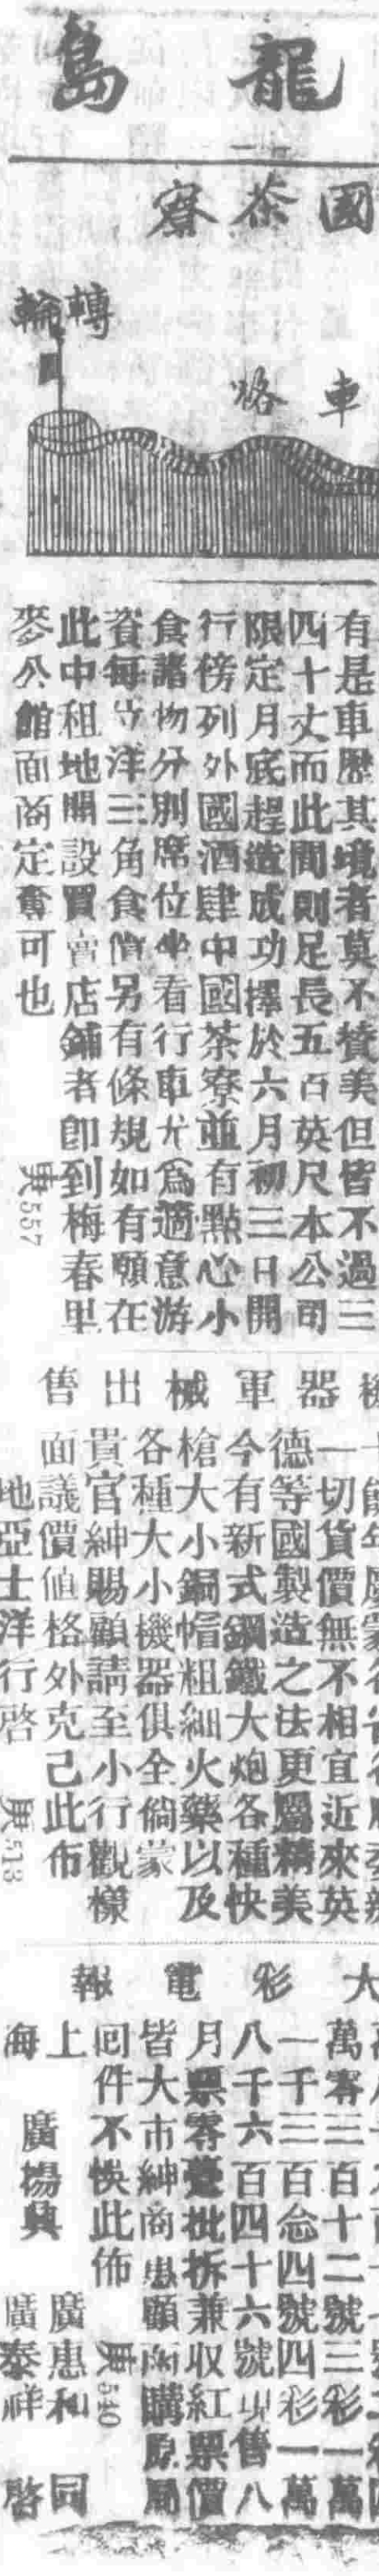 龍島
國茶寮
轉輪
車路
有是車歷其境者莫不贊美但皆不過三
四十丈而此間則足長五百英尺本公司
限定月底趕造成功擇於六月初三日開
行傍列外國酒肆中國茶寮並有點心小
食諸物分別席位坐看行車尤為適意游
資每位洋三角食價另有條規如有願在
此中租地開設買賣店鋪者即到梅春里
麥公館面商定奪可也 庚557
器軍械出售
一切貨價無不相宜近來英
德等國製造之法更屬精美
今有新式鋼鐵大炮各種快
槍大小銅帽粗細火藥以及
各種大小機器俱全倘蒙
貴官紳賜顧請至小行觀樣
面議價值格外克己此布
地亞士洋行啓 庚513
大彩電報
萬零三百十二號三彩一萬
一千三百念四號四彩一萬
八千六百四十六號以售八
月票零躉批拆兼收紅票價
皆大市紳商惠顧函購原局
回件不悞此佈 庚540
上海 廣楊興 廣惠和 廣泰祥 同啓